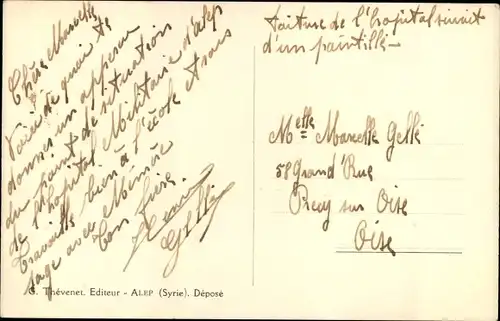 Chère Marcelle
Voici de quoi te
donner un apperçu
du point de situation
de l'hopital Militaire d'alep
Travaille bien à l'école et sois
sage avec Mémère
Ton frère.
Gellé
toiture de l'hopital suivit
d'un pointillé
Melle Marcelle Gellé
58 Grand'Rue
Precy sur Oise
Oise
G. Thévenet. Editeur - ALEP (Syrie). Déposé